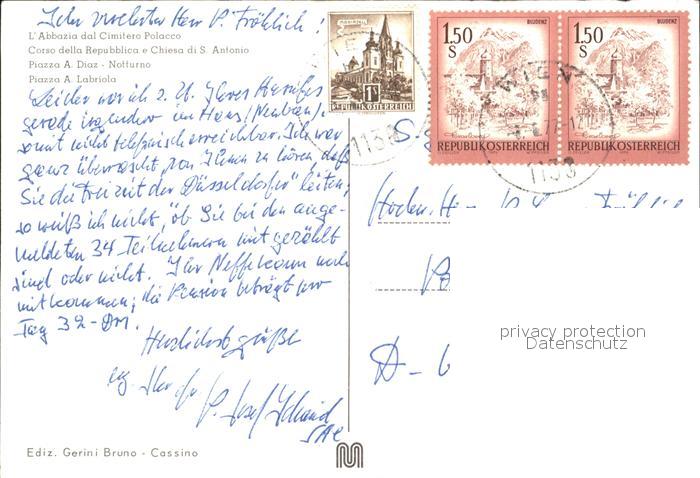 Sehr verehrter Herr P. Fröhlich!
L'Abbazia dal Cimitero Polacco
Corso della Repubblica e Chiesa di S. Antonio
Piazza A. Diaz - Notturno
Piazza A. Labriola
Leider war ich z. Zt. Ihres Anrufes
gerade irgendwo im Haus (Neubau),
somit nicht telefonisch erreichbar. Ich war
ganz überrascht, von Ihnen zu hören, daß
Sie die Freizeit der "Düsseldorfer" leiten;
so weiß ich nicht, ob Sie bei den ange-
meldeten 34 Teilnehmern mit gezählt
sind oder nicht. Ihr Neffe kann noch
mitkommen; die Pension beträgt pro
Tag 32.-DM.
Herzlichst grüßt
P. Josef Schmid
SAC
Ediz. Gerini Bruno - Cassino
MARIAZELL
1S
REPUBLIK ÖSTERREICH
1.50
S
BLUDENZ
REPUBLIK ÖSTERREICH
1.50
S
BLUDENZ
REPUBLIK ÖSTERREICH
WIEN
1138
1138
Hochw. H.
D-
privacy protection
Datenschutz